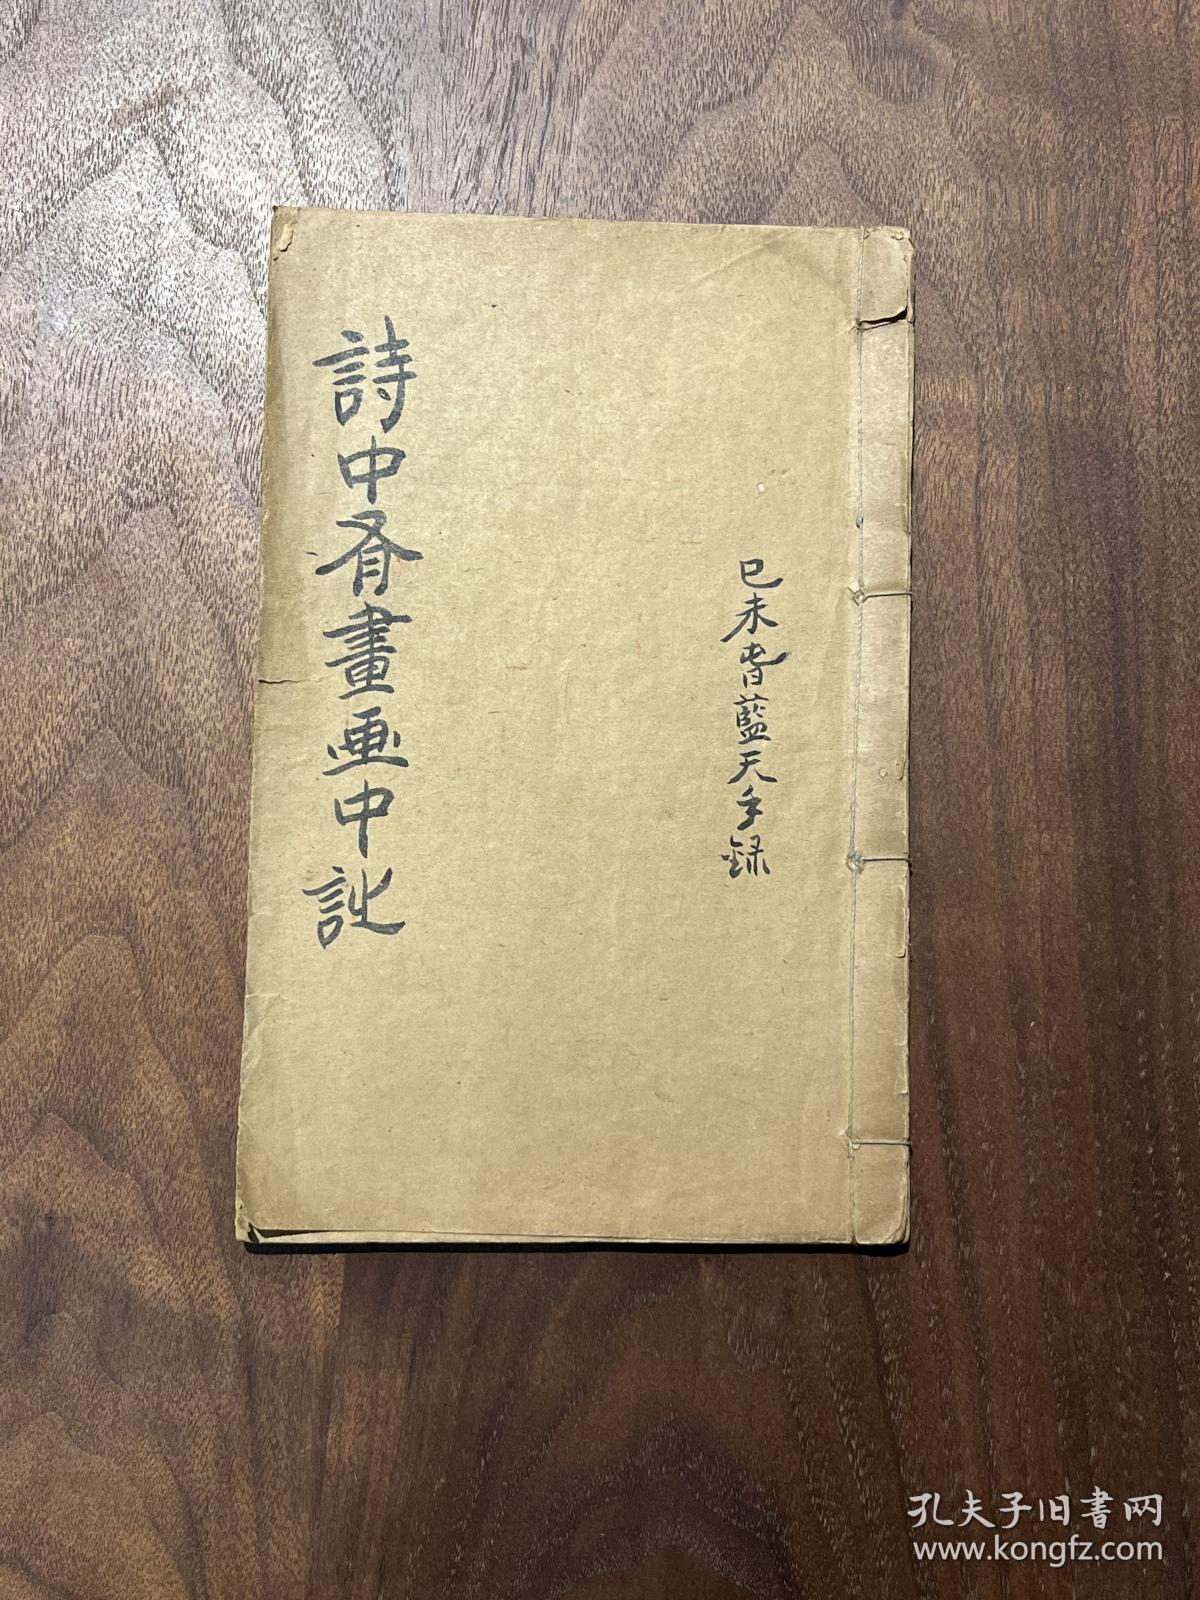 己未旾藍天手録
詩中有畫画中訨
孔夫子旧书网
www.kongfz.com